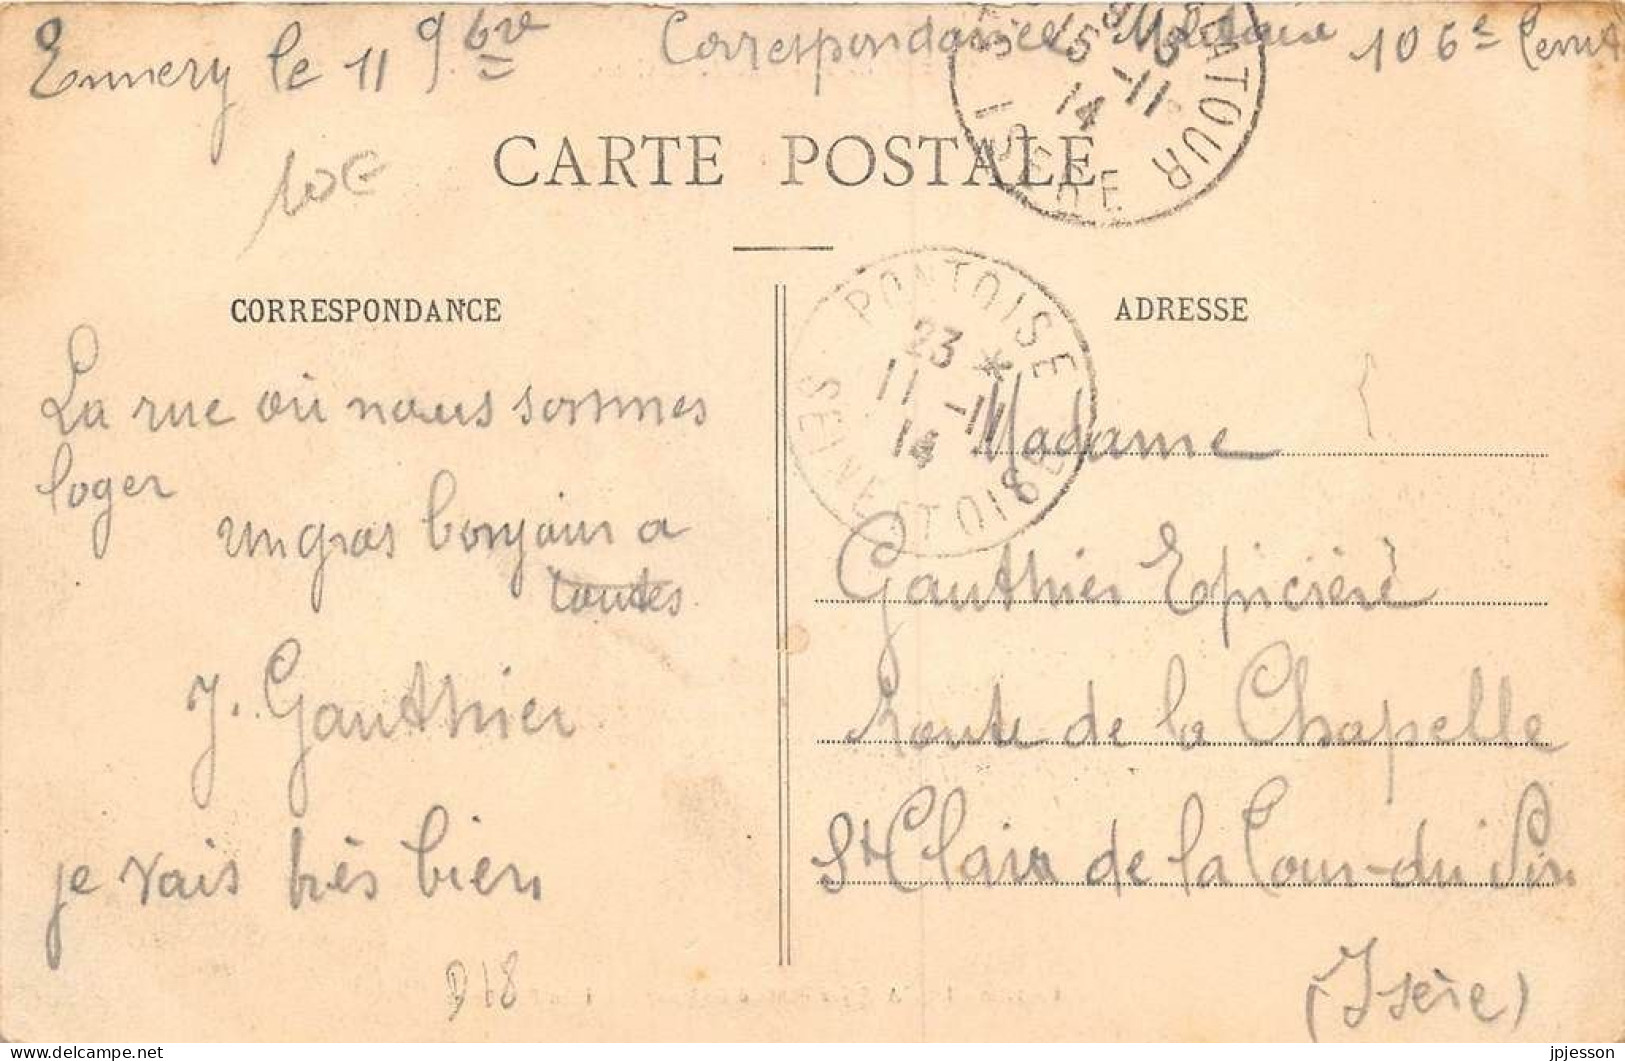 Ennery le 11 9bre Correspondance Militaire 106e
10€
CARTE POSTALE
15 * 15
14 -11
ISERE
CORRESPONDANCE
ADRESSE
PONTOISE
23 *
11 -11
14
SEINE-ET-OISE
La rue où nous sommes
loger
un gros bonjour a
toutes
J. Gauthier
je vais très bien
D18
Madame
Gauthier Epicière
Route de la Chapelle
St Clair de la Tour-du Pin
(Isère)
jpjesson